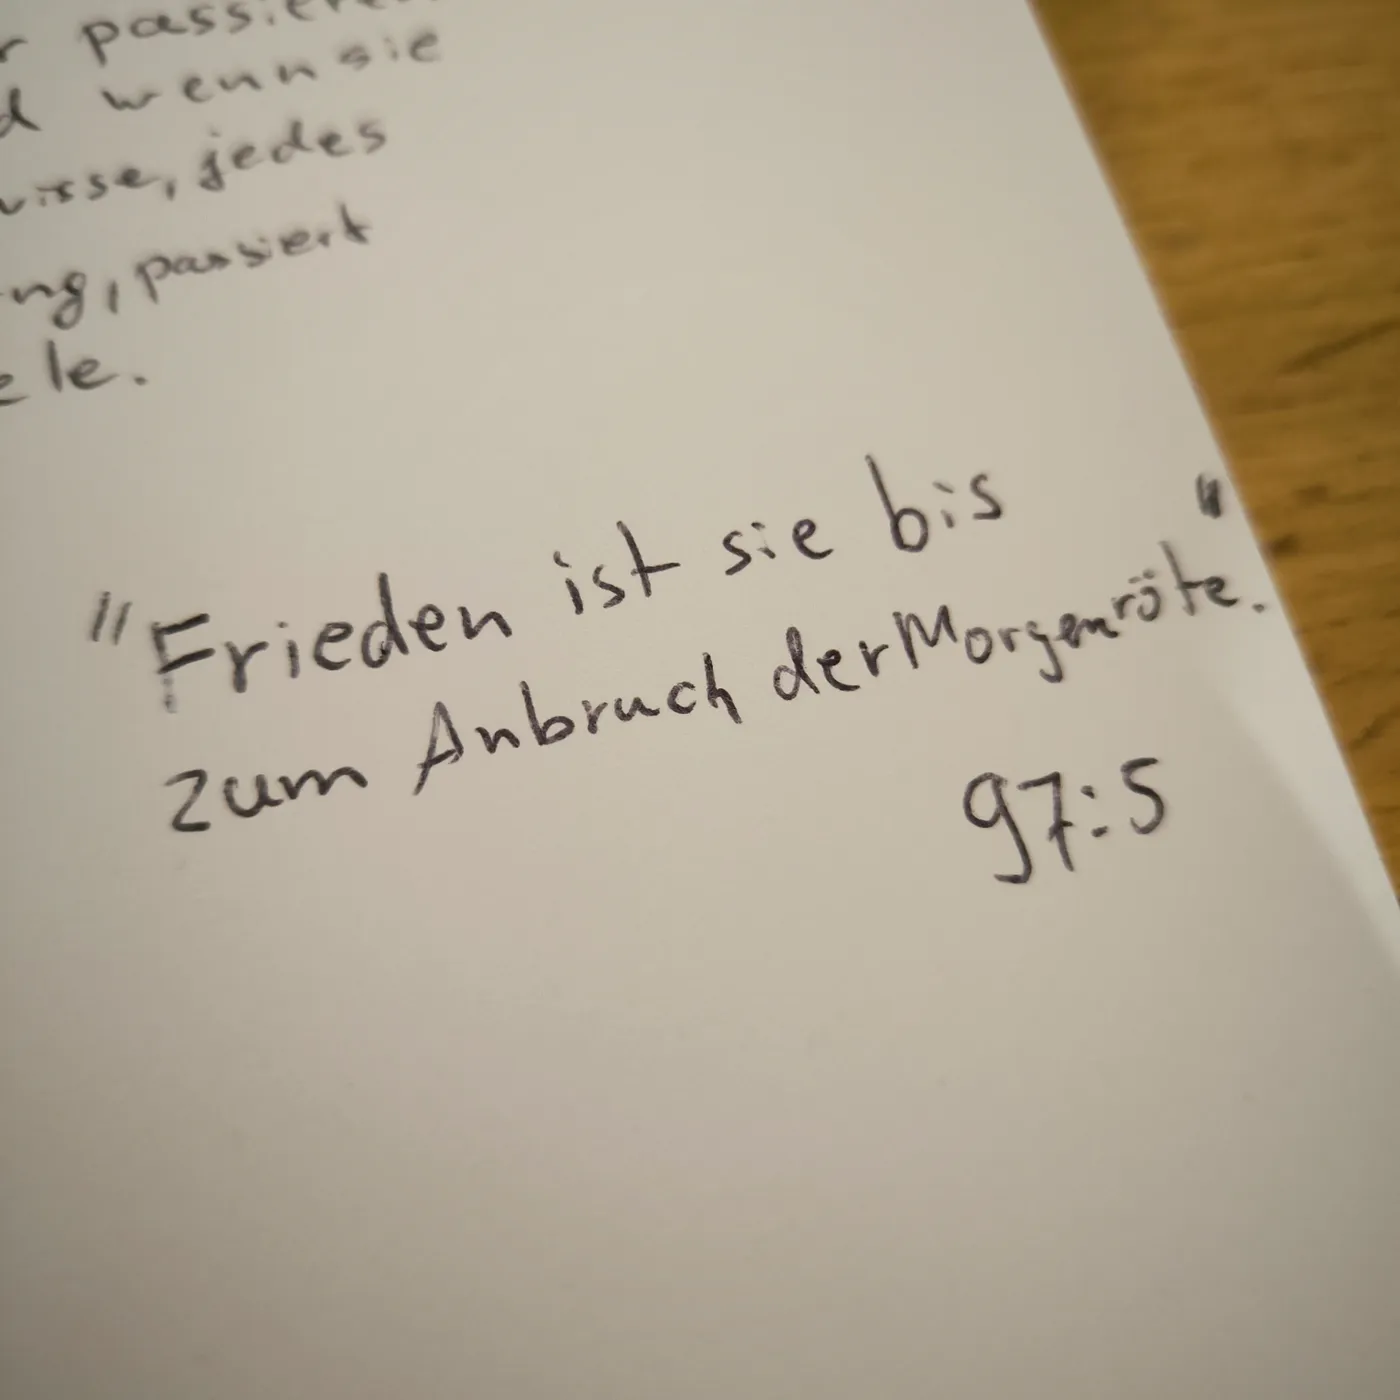 passieren
wenn sie
jedes
passiert
"Frieden ist sie bis
zum Anbruch der Morgenröte."
97:5